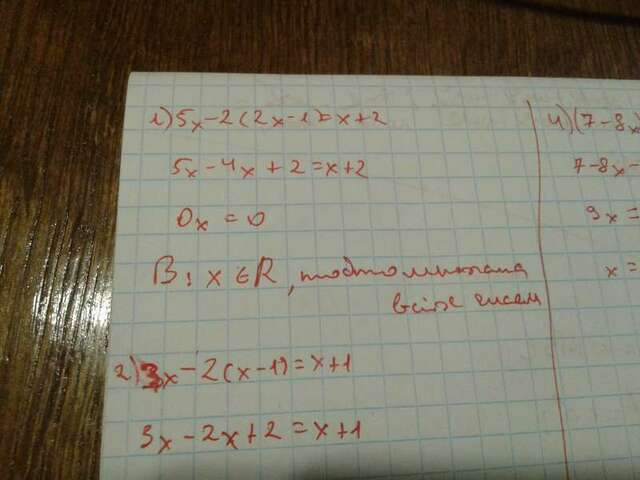 1) 5x-2(2x-1)=x+2
5x-4x+2=x+2
0x=0
В: x∈R, тобто
всіх чисел
2) 3x-2(x-1)=x+1
3x-2x+2=x+1
4) (7-8x)
7-8x-
9x=
x=